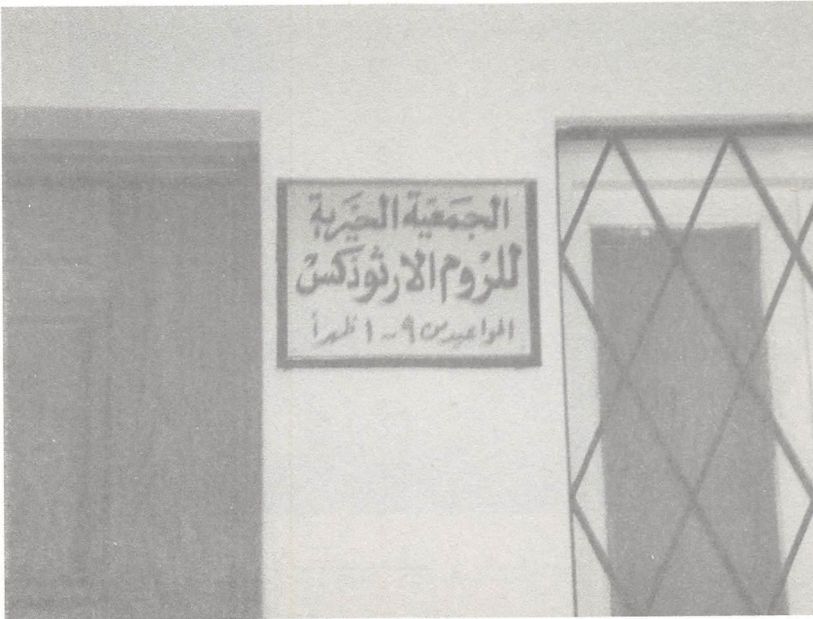 الجمعية الخيرية
للروم الارثوذكس
المواعيد من ٩ - ١ ظهراً